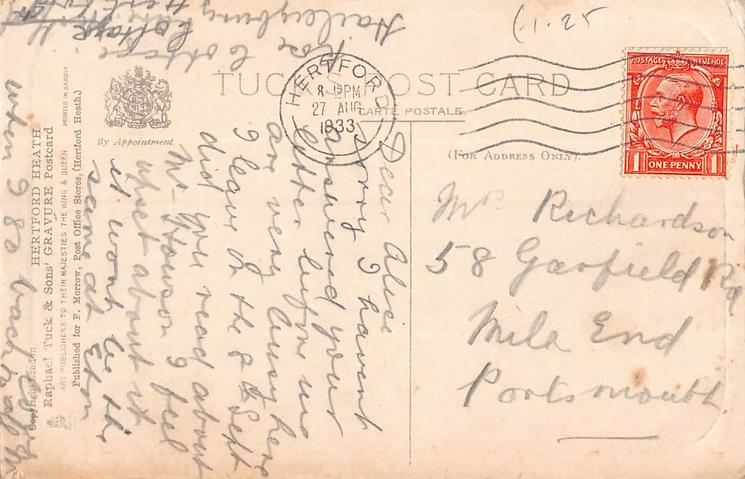 1-25
TUCK'S POST CARD
CARTE POSTALE.
(FOR ADDRESS ONLY).
By Appointment.
HERTFORD
8- PM
27 AUG
1933
POSTAGE REVENUE
1 ONE PENNY 1
Mrs Richardson
58 Garfield Rd
Mile End
Portsmouth
Rose Cottage
Haileybury
Dear Alice
sorry I havent
answered your
letter before we
are very busy here
I leave on the 8th Sept
did you read about
Mr Howson I feel
upset about it
it wont be the
same at Eton
when I go back
PRINTED IN SAXONY
HERTFORD HEATH
Raphael Tuck & Sons' GRAVURE Postcard
ART PUBLISHERS TO THEIR MAJESTIES THE KING & QUEEN
Published for F. Morrow, Post Office Stores, (Hertford Heath.)